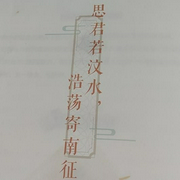 思君若汶水，
浩荡寄南征